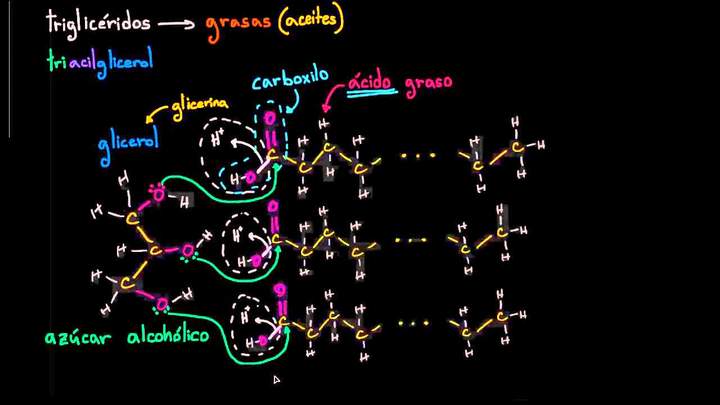 triglicéridos → grasas (aceites)
triacilglicerol
carboxilo
ácido graso
glicerina
glicerol
H⁺
O
H
H H O C C C C ... C C H
H O H
H H H H H H
H C
H C O H
H⁺
O
H O C C C C ... C C H
H H H H H H
H C
O H
H⁺
O
H O C C C C ... C C H
H H H H H H
azúcar alcohólico